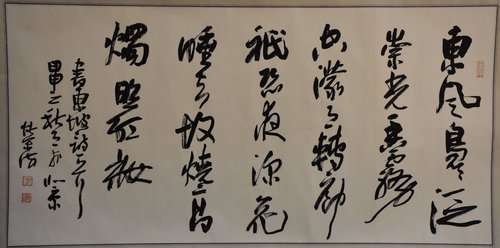 東風裊々泛
崇光香霧
空濛月轉廊
祇恐夜深花
睡去故燒高
燭照紅妝
書東坡詩